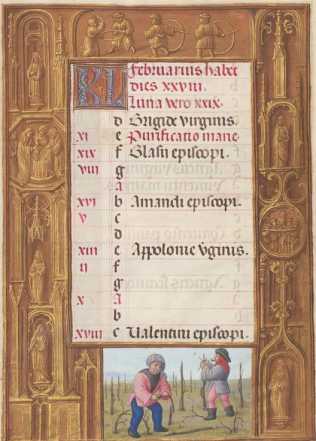 KL februarius habet
dies xxviii.
Luna vero xxix.
d Brigide virginis.
xi e Purificatio marie.
xix f Blasii episcopi.
viii g
a
xvi b Amandi episcopi.
v c
d
e
xiii e Appolonie v̄ginis.
ii f
g
x a
b
xviii c Valentini episcopi.